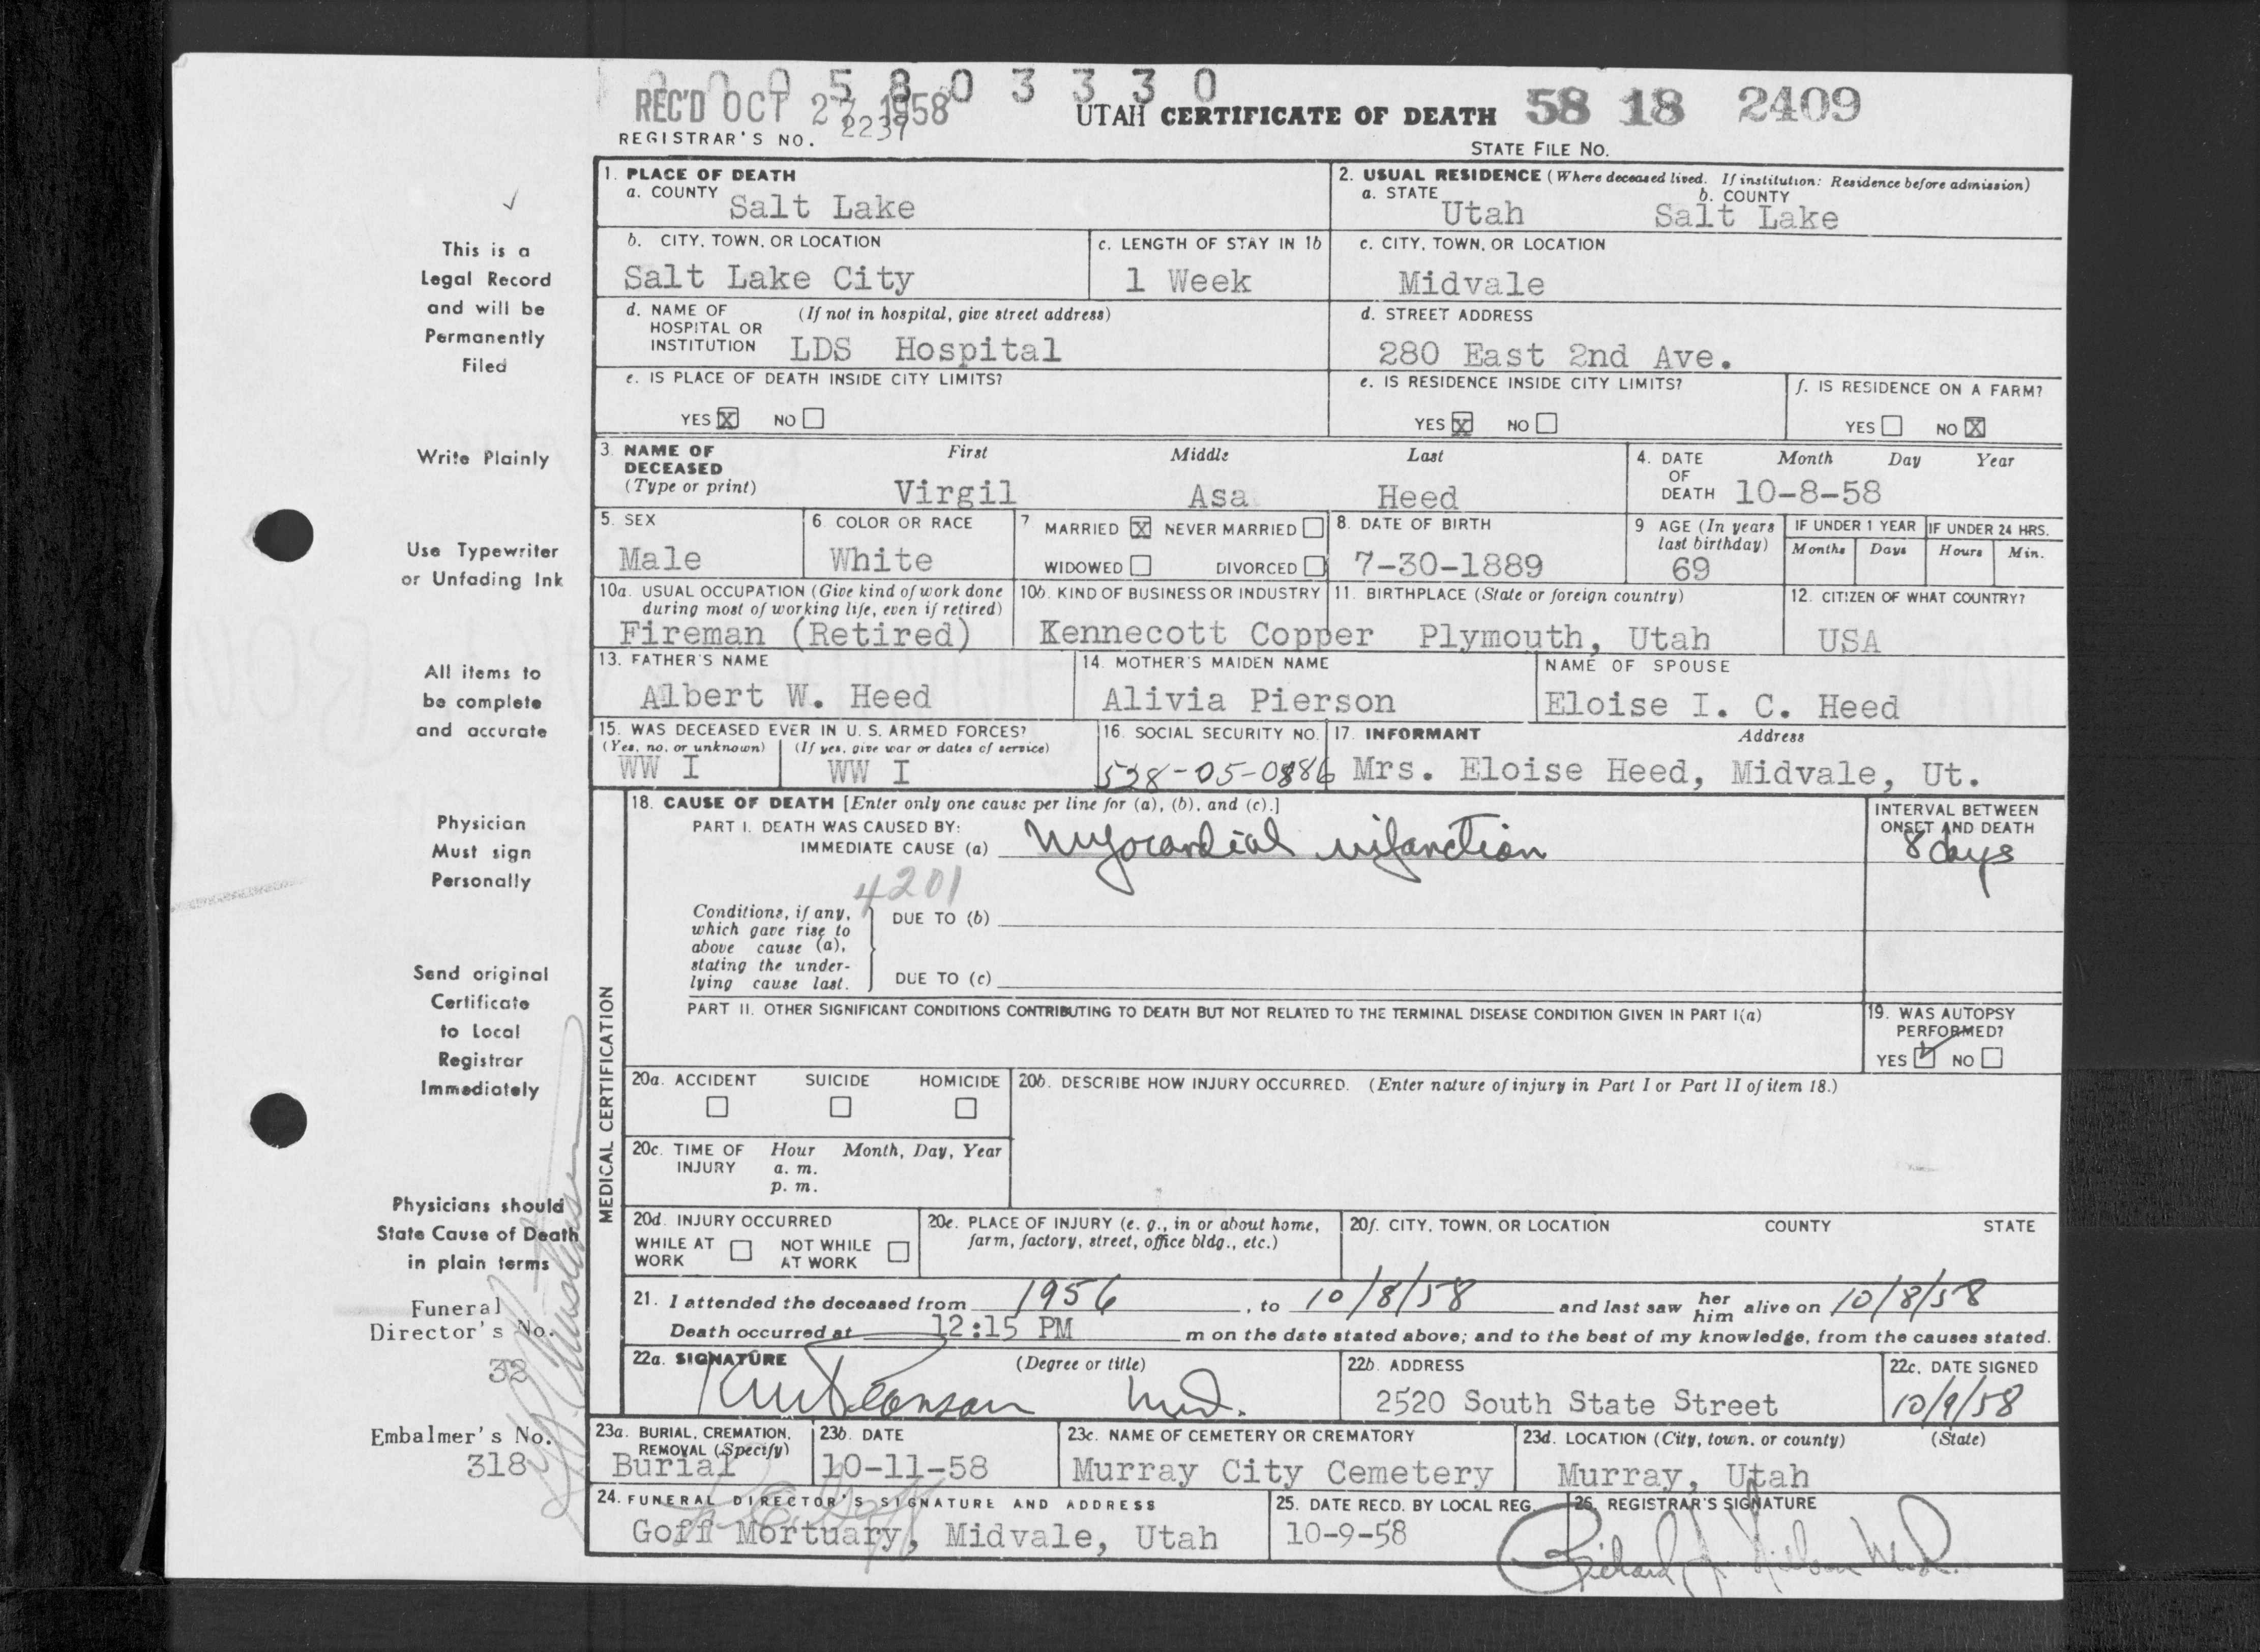 0 0 0 5 8 0 3 3 3 0
REC'D OCT 27 1958
UTAH CERTIFICATE OF DEATH 58 18 2409
REGISTRAR'S NO. 2239
STATE FILE NO.
This is a
Legal Record
and will be
Permanently
Filed
Write Plainly
Use Typewriter
or Unfading Ink
All items to
be complete
and accurate
Physician
Must sign
Personally
Send original
Certificate
to Local
Registrar
Immediately
Physicians should
State Cause of Death
in plain terms
Funeral
Director's No.
32
Embalmer's No.
318
1. PLACE OF DEATH
a. COUNTY Salt Lake
2. USUAL RESIDENCE (Where deceased lived. If institution: Residence before admission)
a. STATE Utah b. COUNTY Salt Lake
b. CITY, TOWN, OR LOCATION
Salt Lake City
c. LENGTH OF STAY IN 1b
1 Week
c. CITY, TOWN, OR LOCATION
Midvale
d. NAME OF (If not in hospital, give street address)
HOSPITAL OR
INSTITUTION LDS Hospital
d. STREET ADDRESS
280 East 2nd Ave.
e. IS PLACE OF DEATH INSIDE CITY LIMITS?
YES X NO
e. IS RESIDENCE INSIDE CITY LIMITS?
YES X NO
f. IS RESIDENCE ON A FARM?
YES NO X
3. NAME OF DECEASED (Type or print)
First Middle Last
Virgil Asa Heed
4. DATE OF DEATH Month Day Year
10-8-58
5. SEX
Male
6. COLOR OR RACE
White
7 MARRIED X NEVER MARRIED
WIDOWED DIVORCED
8. DATE OF BIRTH
7-30-1889
9 AGE (In years last birthday)
69
IF UNDER 1 YEAR IF UNDER 24 HRS.
Months Days Hours Min.
10a. USUAL OCCUPATION (Give kind of work done
during most of working life, even if retired)
Fireman (Retired)
10b. KIND OF BUSINESS OR INDUSTRY
Kennecott Copper
11. BIRTHPLACE (State or foreign country)
Plymouth, Utah
12. CITIZEN OF WHAT COUNTRY?
USA
13. FATHER'S NAME
Albert W. Heed
14. MOTHER'S MAIDEN NAME
Alivia Pierson
NAME OF SPOUSE
Eloise I. C. Heed
15. WAS DECEASED EVER IN U. S. ARMED FORCES?
(Yes, no, or unknown) (If yes, give war or dates of service)
WW I WW I
16. SOCIAL SECURITY NO.
528-05-0886
17. INFORMANT Address
Mrs. Eloise Heed, Midvale, Ut.
MEDICAL CERTIFICATION
18. CAUSE OF DEATH [Enter only one cause per line for (a), (b), and (c).]
PART I. DEATH WAS CAUSED BY:
IMMEDIATE CAUSE (a) Myocardial infarction
INTERVAL BETWEEN
ONSET AND DEATH
8 days
4201
Conditions, if any,
which gave rise to
above cause (a),
stating the under-
lying cause last.
DUE TO (b)
DUE TO (c)
PART II. OTHER SIGNIFICANT CONDITIONS CONTRIBUTING TO DEATH BUT NOT RELATED TO THE TERMINAL DISEASE CONDITION GIVEN IN PART I(a)
19. WAS AUTOPSY
PERFORMED?
YES ✓ NO
20a. ACCIDENT SUICIDE HOMICIDE
20b. DESCRIBE HOW INJURY OCCURRED. (Enter nature of injury in Part I or Part II of item 18.)
20c. TIME OF INJURY Hour Month, Day, Year
a. m.
p. m.
20d. INJURY OCCURRED
WHILE AT WORK NOT WHILE AT WORK
20e. PLACE OF INJURY (e. g., in or about home,
farm, factory, street, office bldg., etc.)
20f. CITY, TOWN, OR LOCATION COUNTY STATE
21. I attended the deceased from 1956, to 10/8/58 and last saw her him alive on 10/8/58
Death occurred at 12:15 PM m on the date stated above; and to the best of my knowledge, from the causes stated.
22a. SIGNATURE (Degree or title)
M.D.
22b. ADDRESS
2520 South State Street
22c. DATE SIGNED
10/9/58
23a. BURIAL, CREMATION,
REMOVAL (Specify)
Burial
23b. DATE
10-11-58
23c. NAME OF CEMETERY OR CREMATORY
Murray City Cemetery
23d. LOCATION (City, town, or county) (State)
Murray, Utah
24. FUNERAL DIRECTOR'S SIGNATURE AND ADDRESS
Goff Mortuary, Midvale, Utah
25. DATE RECD. BY LOCAL REG.
10-9-58
26. REGISTRAR'S SIGNATURE
Richard